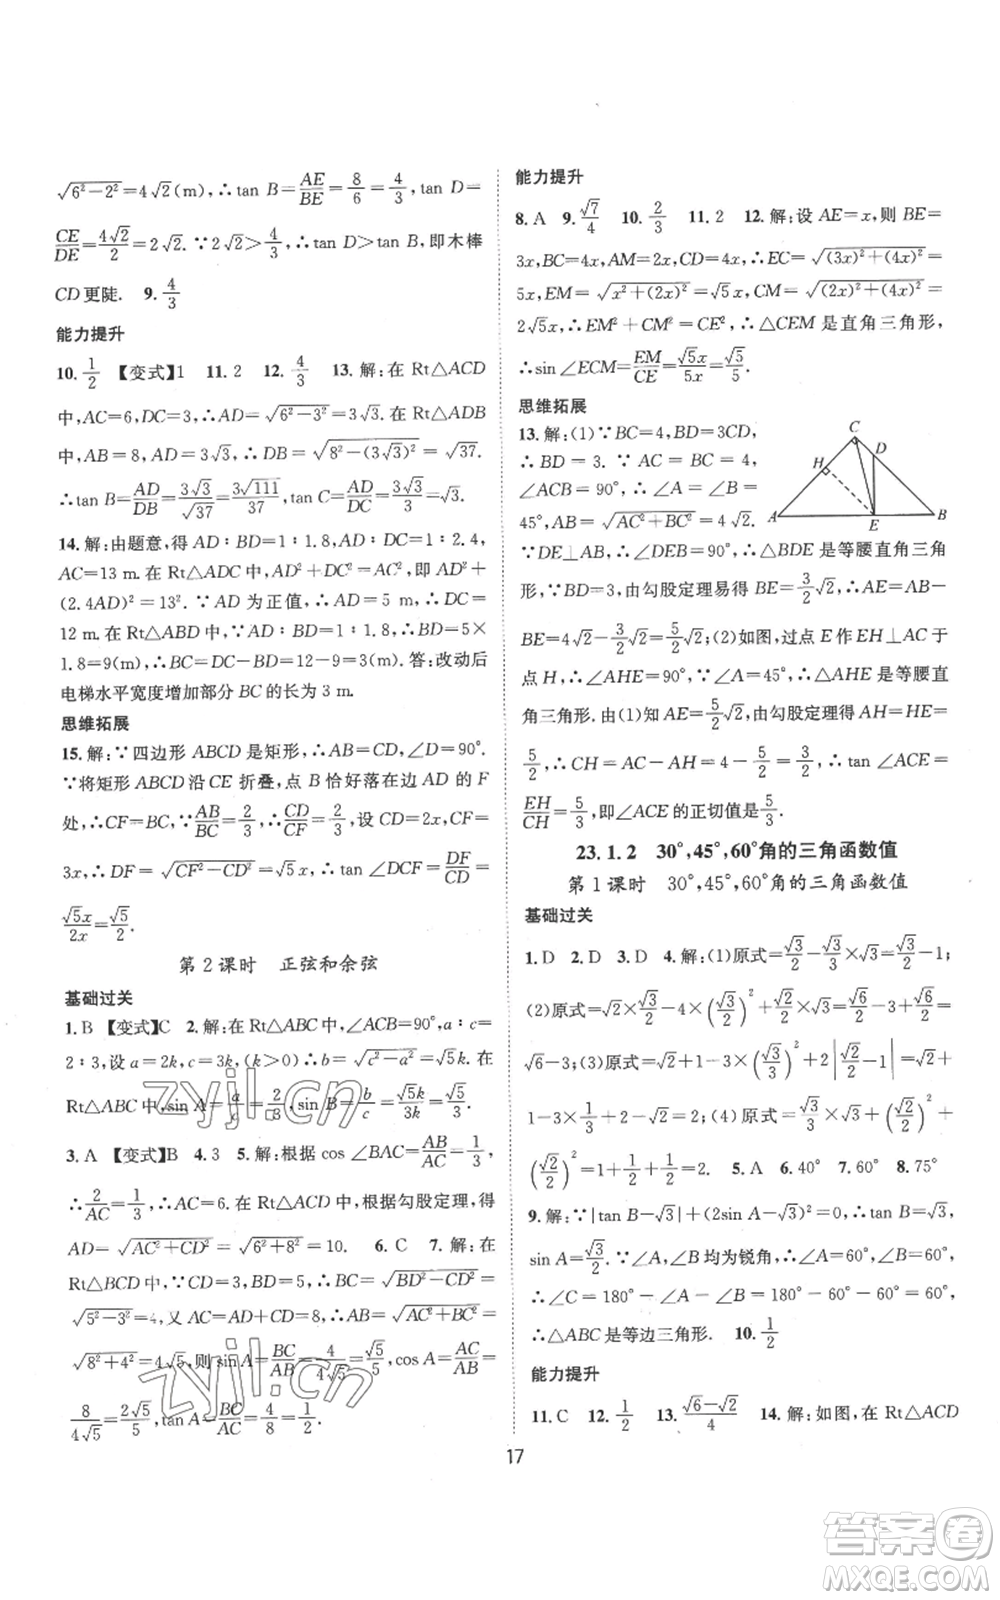 √(6²－2²)＝4√2(m),∴tan B＝AE/BE＝8/6＝4/3,tan D＝
CE/DE＝4√2/2＝2√2.∵2√2＞4/3,∴tan D＞tan B,即木棒
CD更陡. 9.4/3
能力提升
10.1/2 【变式】1 11.2 12.4/3 13.解:在Rt△ACD
中,AC＝6,DC＝3,∴AD＝√(6²－3²)＝3√3.在Rt△ADB
中,AB＝8,AD＝3√3,∴DB＝√(8²－(3√3)²)＝√37.
∴tan B＝AD/DB＝3√3/√37＝3√111/37,tan C＝AD/DC＝3√3/3＝√3.
14.解:由题意,得AD∶BD＝1∶1.8,AD∶DC＝1∶2.4,
AC＝13 m.在Rt△ADC中,AD²＋DC²＝AC²,即AD²＋
(2.4AD)²＝13².∵AD为正值,∴AD＝5 m,∴DC＝
12 m.在Rt△ABD中,∵AD∶BD＝1∶1.8,∴BD＝5×
1.8＝9(m),∴BC＝DC－BD＝12－9＝3(m).答:改动后
电梯水平宽度增加部分BC的长为3 m.
思维拓展
15.解:∵四边形ABCD是矩形,∴AB＝CD,∠D＝90°.
∵将矩形ABCD沿CE折叠,点B恰好落在边AD的F
处,∴CF＝BC,∵AB/BC＝2/3,∴CD/CF＝2/3,设CD＝2x,CF＝
3x,∴DF＝√(CF²－CD²)＝√5x,∴tan∠DCF＝DF/CD＝
√5x/2x＝√5/2.
第2课时 正弦和余弦
基础过关
1.B 【变式】C 2.解:在Rt△ABC中,∠ACB＝90°,a∶c＝
2∶3,设a＝2k,c＝3k(k＞0),∴b＝√(c²－a²)＝√5k.在
Rt△ABC中,sin A＝a/c＝2/3,sin B＝b/c＝√5k/3k＝√5/3.
3.A 【变式】B 4.3 5.解:根据cos∠BAC＝AB/AC＝1/3,
∴2/AC＝1/3,∴AC＝6.在Rt△ACD中,根据勾股定理,得
AD＝√(AC²＋CD²)＝√(6²＋8²)＝10. 6.C 7.解:在
Rt△BCD中,∵CD＝3,BD＝5,∴BC＝√(BD²－CD²)＝
√(5²－3²)＝4,又AC＝AD＋CD＝8,∴AB＝√(AC²＋BC²)＝
√(8²＋4²)＝4√5,则sin A＝BC/AB＝4/4√5＝√5/5,cos A＝AC/AB＝
8/4√5＝2√5/5,tan A＝BC/AC＝4/8＝1/2.
能力提升
8.A 9.√7/4 10.2/3 11.2 12.解:设AE＝x,则BE＝
3x,BC＝4x,AM＝2x,CD＝4x,∴EC＝√((3x)²＋(4x)²)＝
5x,EM＝√(x²＋(2x)²)＝√5x,CM＝√((2x)²＋(4x)²)＝
2√5x,∴EM²＋CM²＝CE²,∴△CEM是直角三角形,
∴sin∠ECM＝EM/CE＝√5x/5x＝√5/5.
思维拓展
13.解:(1)∵BC＝4,BD＝3CD,
∴BD＝3.∵AC＝BC＝4,
∠ACB＝90°,∴∠A＝∠B＝
45°,AB＝√(AC²＋BC²)＝4√2.
C
D
H
A
E
B
∵DE⊥AB,∴∠DEB＝90°,∴△BDE是等腰直角三角
形,∵BD＝3,由勾股定理易得BE＝3/2√2,∴AE＝AB－
BE＝4√2－3/2√2＝5/2√2;(2)如图,过点E作EH⊥AC于
点H,∴∠AHE＝90°,∵∠A＝45°,∴△AHE是等腰直
角三角形.由(1)知AE＝5/2√2,由勾股定理得AH＝HE＝
5/2,∴CH＝AC－AH＝4－5/2＝3/2,∴tan∠ACE＝
EH/CH＝5/3,即∠ACE的正切值是5/3.
23.1.2 30°,45°,60°角的三角函数值
第1课时 30°,45°,60°角的三角函数值
基础过关
1.D 2.D 3.D 4.解:(1)原式＝√3/2－1/2×√3＝√3/2－1;
(2)原式＝√2×√3/2－4×(√3/2)²＋√2/2×√3＝√6/2－3＋√6/2＝
√6－3;(3)原式＝√2＋1－3×(√3/3)²＋2|√2/2－1|＝√2＋
1－3×1/3＋2－√2＝2;(4)原式＝√3/3×√3＋(√2/2)²＋
(√2/2)²＝1＋1/2＋1/2＝2. 5.A 6.40° 7.60° 8.75°
9.解:∵|tan B－√3|＋(2sin A－√3)²＝0,∴tan B＝√3,
sin A＝√3/2.∵∠A,∠B均为锐角,∴∠A＝60°,∠B＝60°,
∴∠C＝180°－∠A－∠B＝180°－60°－60°＝60°,
∴△ABC是等边三角形. 10.1/2
能力提升
11.C 12.1/2 13.(√6－√2)/4 14.解:如图,在Rt△ACD
17
zyjl.cn
zyjl.cn
答案卷
MXQE.COM